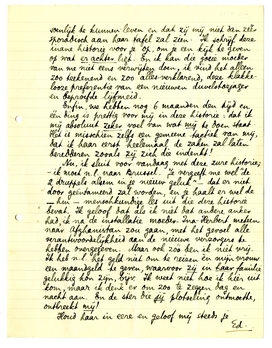 voenlijk te kunnen leven en dat zij mij niet den
sponsdoek aan haar tafel zal zien. Ik schrijf deze
inane historie voor je op, om je een kijk te geven
of wat er achter ligt. En ik kan die goeie moeder
van me niet eens verwijten doen, ik vind het alleen
zoo teekenend en zoo alles-verklarend, deze
looze preferentie van een nieuwen duvelstoejager
en beproefde lijfeend.
Enfin, we hebben nog 6 maanden den tijd en
één ding is prettig voor mij in deze historie: dat ik
mij absoluut zeker voel van wat mij te doen staat.
Het is misschien zelfs een gemeene taptiek van mij,
dat ik haar eerst heelemaal de zaken zal laten
beredderen zooals zij zich die indenkt!
Nu, ik sluit voor vandaag met deze zure historie;
ik moet n.l. naar Brussel. Je vergeeft me wel de
2 druppels alsem in je nieuw geluk - dat er niet
door getroubleerd zal worden, en je haalt er wel de
hum - menschkundige les uit die deze historie
bevat. Ik geloof dat als ik niet wat anders onder
had, ik na de installatie moeder ma Herbert meden
naar Afghanistan zou gaan, met het gevoel alle
verantwoordelijkheid aan de nieuwe verzorgers te
hebben overgegeven. Maar ook zoo ben ik niet vrij.
Ik heb n.l. het geld niet om te reizen en mijn vrouw
een maandgeld te geven, waarvoor zij in haar familie
gelukkig kon zijn, bijv. Ik weet niet hoe ik hier uit
kom, maar ik denk er om zoo te zeggen dag en
nacht aan. En de ster die jij plotseling ontmoette,
ontbreekt mij!
Houd haar in eere en geloof mij steeds je
Ed.